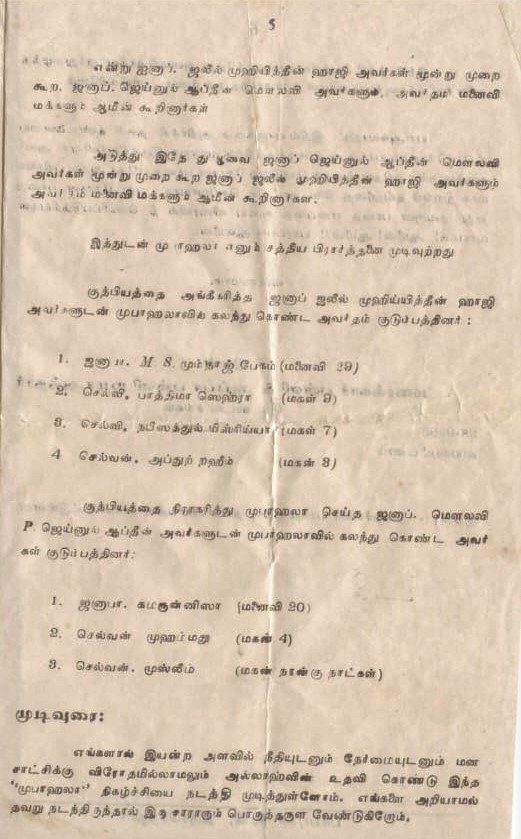 5
என்று ஜனாப். ஜலீல் முஹியித்தீன் ஹாஜி அவர்கள் மூன்று முறை
கூற, ஜனாப். ஜெய்னுல் ஆப்தீன் மௌலவி அவர்களும், அவர்தம் மனைவி
மக்களும் ஆமீன் கூறினார்கள்
அடுத்து இதே துஆவை ஜனாப் ஜெய்னுல் ஆப்தீன் மௌலவி
அவர்கள் மூன்று முறை கூற ஜனாப் ஜலீல் முஹியித்தீன் ஹாஜி அவர்களும்
அவர்தம் மனைவி மக்களும் ஆமீன் கூறினார்கள்.
இத்துடன் முபாஹலா எனும் சத்திய பிரார்த்தனை முடிவுற்றது
குத்பியத்தை அங்கீகரித்த ஜனாப் ஜலீல் முஹிய்யித்தீன் ஹாஜி
அவர்களுடன் முபாஹலாவில் கலந்து கொண்ட அவர்தம் குடும்பத்தினர் :
1. ஜனாபா. M. S. மும்தாஜ் பேகம் (மனைவி 29)
2. செல்வி, பாத்திமா ஸெஹரா (மகள் 9)
3. செல்வி, நபீஸத்துல் மிஸ்ரிய்யா (மகள் 7)
4 செல்வன், அப்துற் றஹீம் (மகன் 3)
குத்பியத்தை நிராகரித்து முபாஹலா செய்த ஜனாப். மௌலவி
P. ஜெய்னுல் ஆப்தீன் அவர்களுடன் முபாஹலாவில் கலந்து கொண்ட அவர்
கள் குடும்பத்தினர்:
1. ஜனாபா. கமருன்னிஸா (மனைவி 20)
2. செல்வன் முஹம்மது (மகன் 4)
3. செல்வன். முஸ்லீம் (மகன் நான்கு நாட்கள்)
முடிவுரை:
எங்களால் இயன்ற அளவில் நீதியுடனும் நேர்மையுடனும் மன
சாட்சிக்கு விரோதமில்லாமலும் அல்லாஹ்வின் உதவி கொண்டு இந்த
"முபாஹலா" நிகழ்ச்சியை நடத்தி முடித்துள்ளோம். எங்களை அறியாமல்
தவறு நடத்திருந்தால் இரு சாராரும் பொருத்தருள வேண்டுகிறோம்.